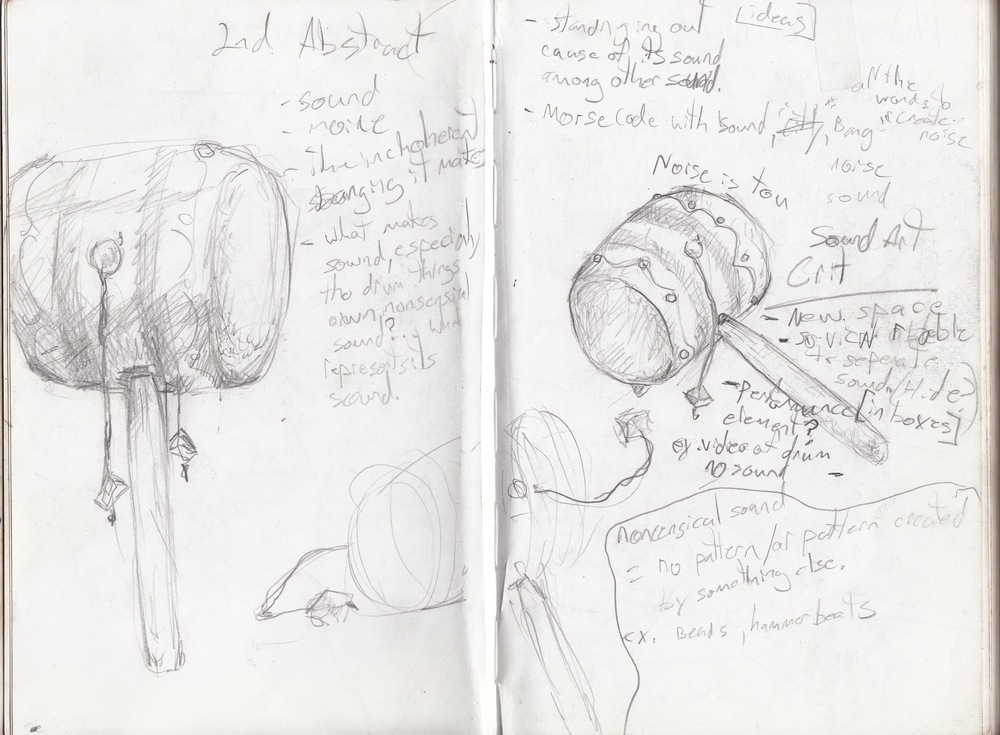 2nd Abstract
- sound
- noise
- the incoherent
banging it makes
- what makes
sound, especially
the drum things
own nonsensical
sound? what
represents its
sound.
[ideas]
- standing out
cause of its sound
among other sound.
- Morse Code with sound, Bang
all the
words to
create
noise
noise
sound
Noise is You
Sound Art
Crit
- New space
- so view is able
to seperate
sound/Hide?
[in boxes]
- performance
element?
ex. video of drum
no sound
noncensical sound
= no pattern/or pattern created
by something else.
ex. Beads, hammer beats